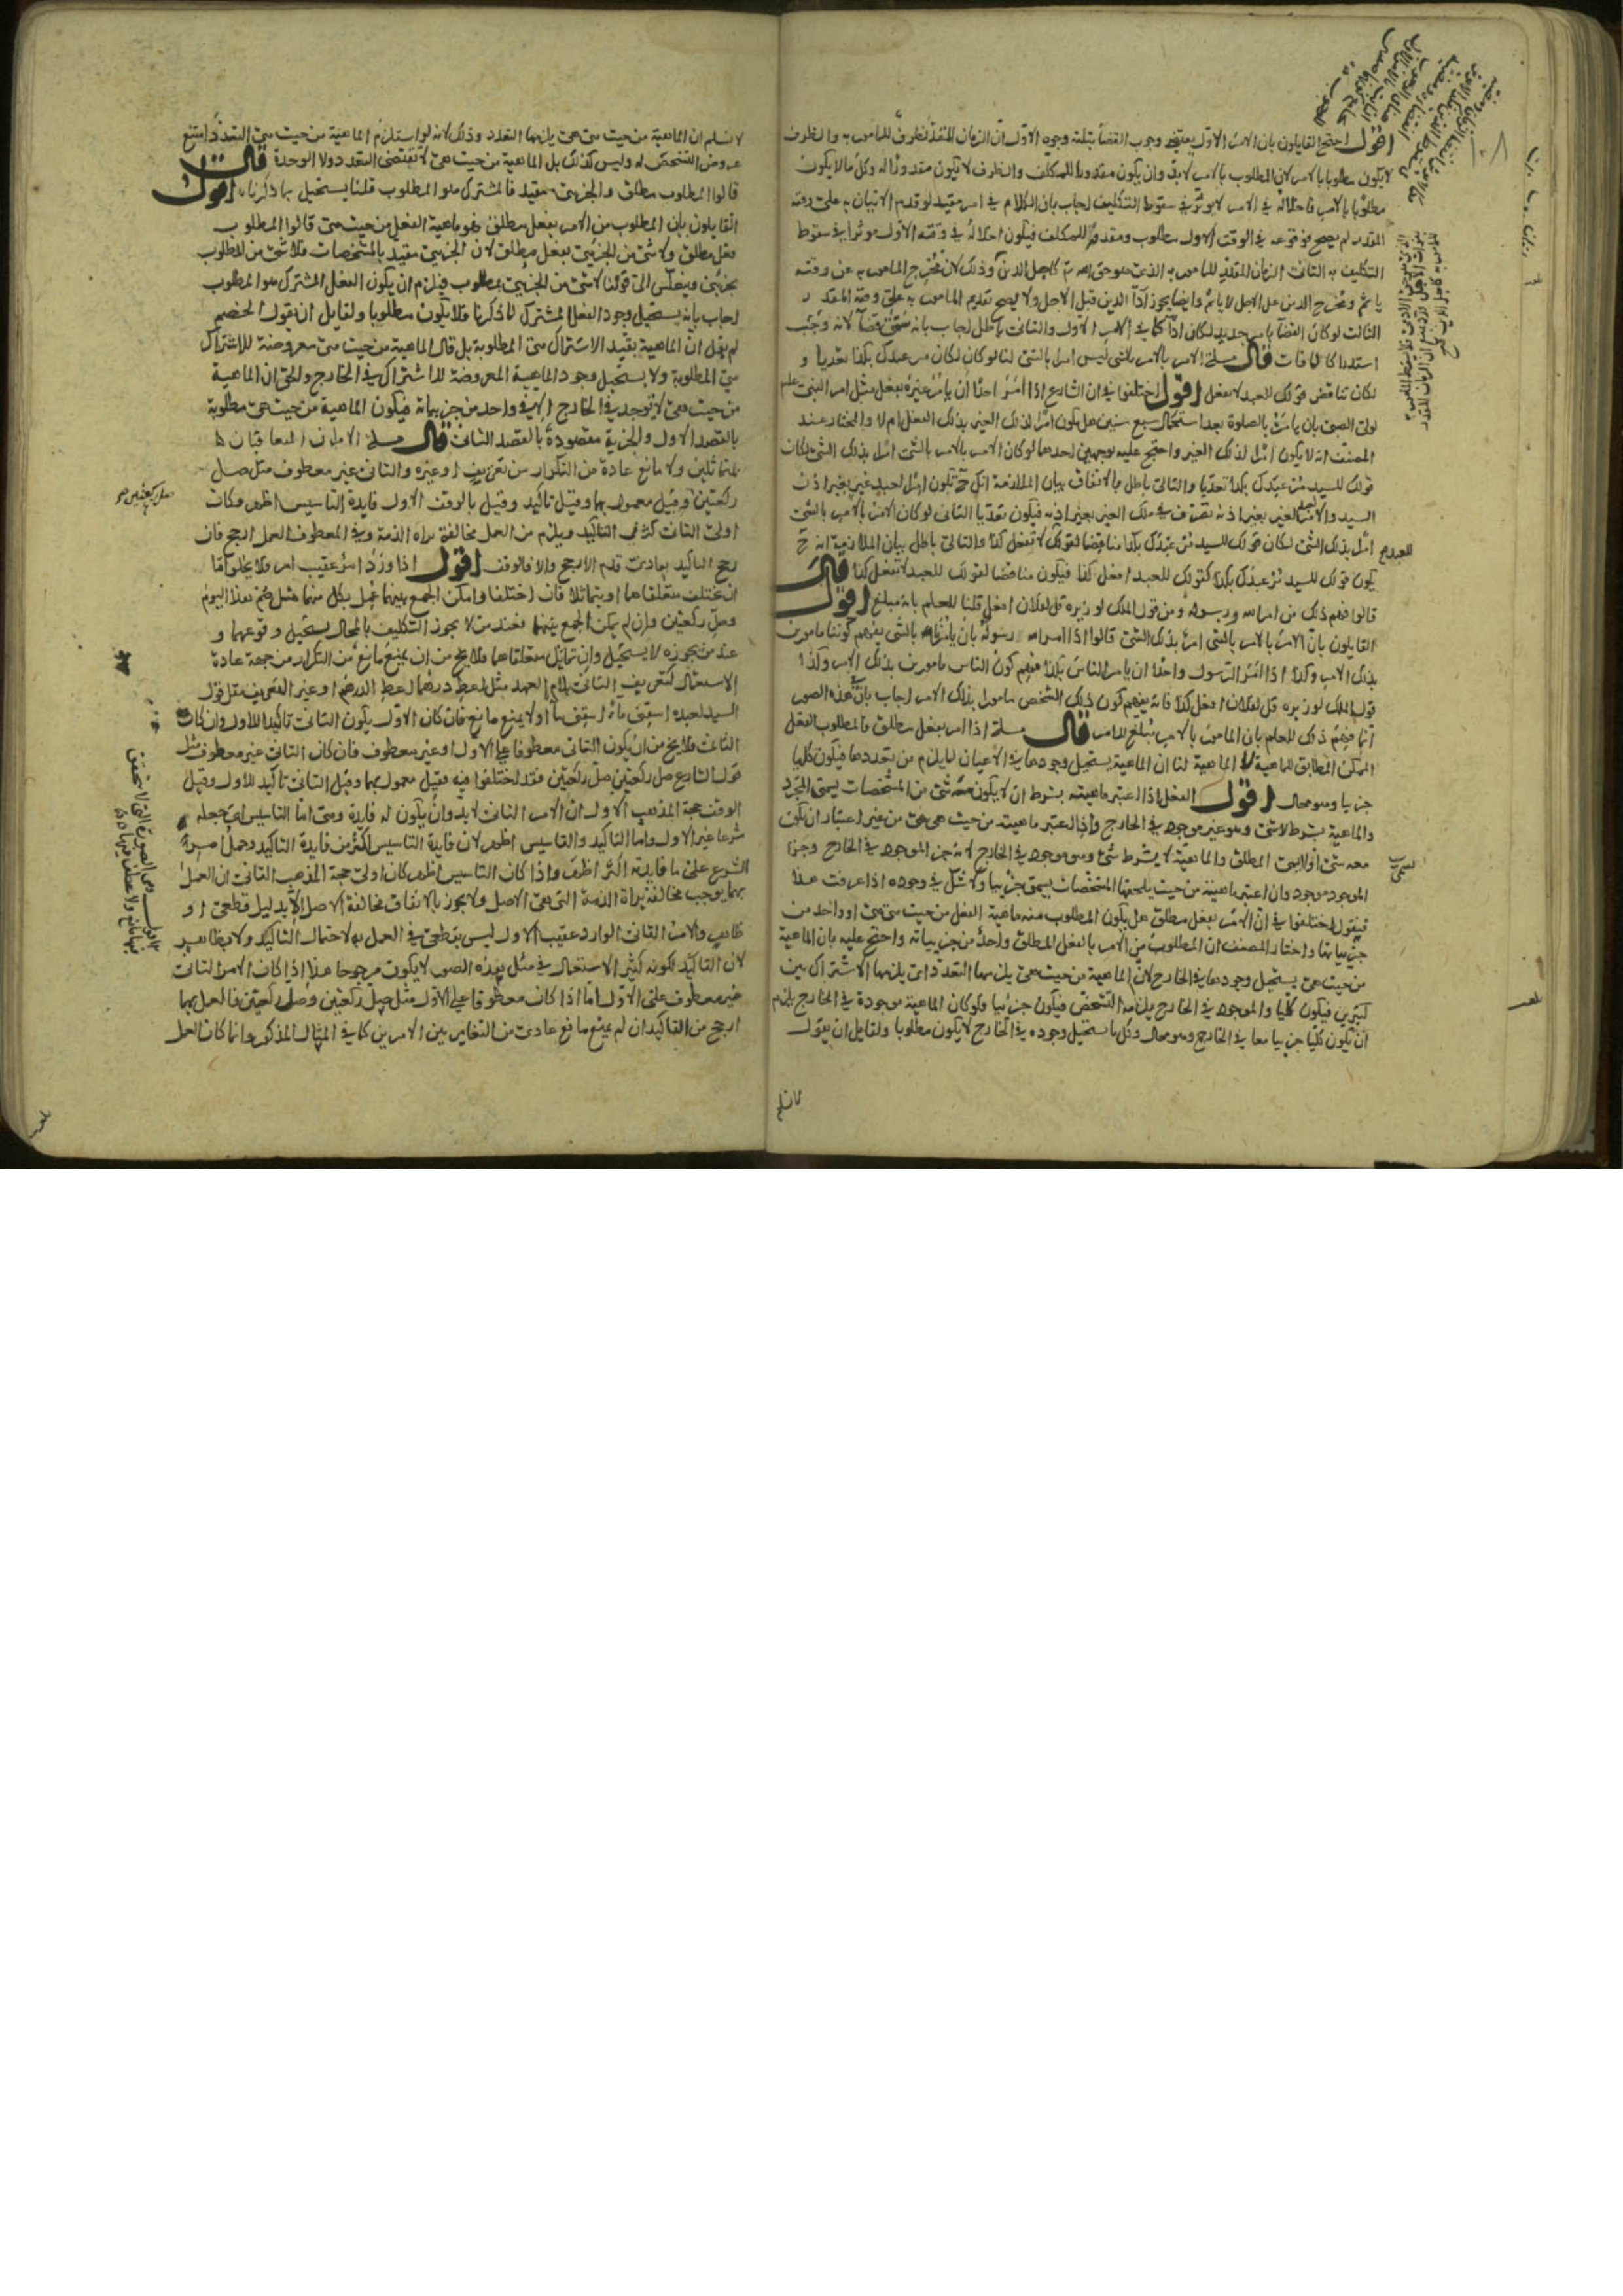 اقول احتج القايلون بان الامر الاول يقتضي وجوب القضا بثلثة وجوه الاول ان الزمان المقدر ظرف للمامور به والظرف
لا يكون مطلوبا بالامر لان المطلوب بالامر لا بد وان يكون مقدورا للمكلف والظرف لا يكون مقدورا له وكل ما لا يكون
مطلوبا بالامر فاخلاله في الامر لا يوثر في سقوط التكليف اجاب بان الكلام في امر مقيد لو قدم الاتيان به على وقته
المقدر لم يصح فوقوعه في الوقت الاول مطلوب ومقدور للمكلف فيكون اخلاله في وقته الاول موثرا في سقوط
التكليف به الثاني الزمان المقدر للمامور به الذي هو حق الله تعالى كاجل الدين وذلك لان مخرج المامور به عن وقته
ياثم ومخرج الدين عن الاجل لا ياثم وايضا يجوز اداء الدين قبل الاجل ولا يصح تقديم المامور به على وقته المقدر
الثالث لو كان القضا بامر جديد لكان اداء كما في الامر الاول والتالي باطل اجاب بانه سمي قضا لانه وجب
استدراكا لما فات قال مسلة الامر بالامر بالشي ليس امرا بالشي لنا لو كان لكان مر عبدك بكذا تعديا و
لكان تناقض قولك للعبد لا تفعل اقول اختلفوا في ان الشارع اذا امر احدا ان يامر غيره بفعل مثل امر النبي علم
لولي الصبي بان يامره بالصلوة بعد استكمال سبع سنين هل يكون امرا لذلك الغير بذلك الفعل ام لا والمختار عند
المصنف انه لا يكون امرا لذلك الغير واحتج عليه بوجهين احدهما لو كان الامر بالامر بالشي امرا بذلك الشي لكان
قولك للسيد مر عبدك بكذا تعديا والتالي باطل بالاتفاق بيان الملازمة انك ح تكون امرا لعبد غيرك بغير اذن
السيد والامر لعبد الغير بغير اذنه تصرف في ملك الغير بغير اذنه فيكون تعديا الثاني لو كان الامر بالامر بالشي
امرا بذلك الشي لكان قولك للسيد مر عبدك بكذا مناقضا لقولك لا تفعل كذا والتالي باطل بيان الملازمة انه ح
يكون قولك للسيد مر عبدك بكذا كقولك للعبد افعل كذا فيكون مناقضا لقولك للعبد لا تفعل كذا قال
قالوا فهم ذلك من امر الله ورسوله ومن قول الملك لوزيره قل لفلان افعل قلنا للعلم بانه مبلغ اقول
القايلون بان الامر بالامر بالشي امر بذلك الشي قالوا اذا امر الله رسوله بان يامرنا بالشي يفهم كوننا مامورين
بذلك الامر وكذا اذا امر الرسول واحدا ان يامر الناس بكذا فهم كون الناس مامورين بذلك الامر وكذا
قول الملك لوزيره قل لفلان افعل كذا فانه يفهم كون ذلك الشخص مامورا بذلك الامر اجاب بان في هذه الصور
انما فهم ذلك للعلم بان المامور بالامر مبلغ للامر قال مسلة اذا امر بفعل مطلق فالمطلوب الفعل
الممكن المطابق للماهية لا الماهية لنا ان الماهية يستحيل وجودها في الاعيان لما يلزم من تعددها فيكون كليا
جزييا وهو محال اقول الفعل اذا اعتبر ماهيته بشرط ان لا يكون معه شي من المشخصات يسمى المجرد
والماهية بشرط لا شي وهو غير موجود في الخارج واذا اعتبر ماهيته من حيث هي هي من غير اعتبار ان يكون
معه شي او لا يسمى المطلق والماهية لا بشرط شي وهو موجود في الخارج لانه جز الموجود في الخارج وجزء
الموجود موجود وان اعتبر ماهيته من حيث يلحقها المشخصات يسمى جزييا ولا شك في وجوده اذا عرفت هذا
فيقول اختلفوا في ان الامر بفعل مطلق هل يكون المطلوب منه ماهية الفعل من حيث هي هي او واحد من
جزيياتها واختار المصنف ان المطلوب من الامر بالفعل المطلق واحد من جزيياته واحتج عليه بان الماهية
من حيث هي يستحيل وجودها في الخارج لان الماهية من حيث هي يلزمها التعدد اي يلزمها الاشتراك بين
كثيرين فيكون كليا والموجود في الخارج يلزمه التشخص فيكون جزئيا ولو كان الماهية موجودة في الخارج يلزم
ان يكون كليا جزييا معا في الخارج وهو محال وكل ما يستحيل وجوده في الخارج لا يكون مطلوبا ولقايل ان يقول
لا نسلم
لا نسلم ان الماهية من حيث هي هي يلزمها التعدد وذلك لانه لو استلزم الماهية من حيث هي التعدد امتنع
عروض التشخص له وليس كذلك بل الماهية من حيث هي لا تقتضي التعدد ولا الوحدة قال
قالوا المطلوب مطلق والجزيي مقيد فالمشترك هو المطلوب قلنا يستحيل بما ذكرناه اقول
القايلون بان المطلوب من الامر بفعل مطلق هو ماهية الفعل من حيث هي قالوا المطلوب
فعل مطلق ولا شي من الجزيي بفعل مطلق لان الجزيي مقيد بالمشخصات فلا شي من المطلوب
بجزيي وينعكس الى قولنا لا شي من الجزيي بمطلوب فيلزم ان يكون الفعل المشترك هو المطلوب
اجاب بانه يستحيل وجود الفعل المشترك لما ذكرنا فلا يكون مطلوبا ولقايل ان يقول الخصم
لم يقل ان الماهية بقيد الاشتراك هي المطلوبة بل قال الماهية من حيث هي معروضة للاشتراك
هي المطلوبة ولا يستحيل وجود الماهية المعروضة للاشتراك في الخارج والحق ان الماهية
من حيث هي لا توجد في الخارج الا في واحد من جزيياته فيكون الماهية من حيث هي مطلوبة
بالقصد الاول والجزيية مقصودة بالقصد الثاني قال مسلة الامران المتعاقبان
بمتماثلين ولا مانع عادة من التكرار من تعريف او غيره والثاني غير معطوف مثل صل
ركعتين وقيل معمول بهما وقيل تاكيد وقيل بالوقف الاول فايدة التاسيس اظهر فكان
اولى الثاني كثر في التاكيد ويلزم من العمل مخالفة براة الذمة وفي المعطوف العمل ارجح فان
رجح التاكيد بعادي قدم الارجح والا فالوقف اقول اذا ورد امر عقيب امر فلا يخلو اما
ان تختلف متعلقاهما او يتماثلا فان اختلفا وامكن الجمع بينهما عمل بكل منهما مثل صم هذا اليوم
وصل ركعتين وان لم يمكن الجمع بينهما فعند من لا يجوز التكليف بالمحال يستحيل وقوعهما و
عند من يجوزه لا يستحيل وان تماثل متعلقاهما فلا يخ من ان يمنع مانع من التكرار من جهة عادة
الاستعمال كتعريف الثاني بلام العهد مثل اعط درهما اعط الدرهم او غير التعريف مثل قول
السيد لعبده اسقني ماء اسقني ماء او لا يمنع مانع فان كان الاول يكون الثاني تاكيدا للاول وان كان
الثاني فلا يخ من ان يكون الثاني معطوفا على الاول او غير معطوف فان كان الثاني غير معطوف مثل
قول الشارع صل ركعتين صل ركعتين فقد اختلفوا فيه فقيل معمول بهما وقيل الثاني تاكيد للاول وقيل
الوقف حجة المذهب الاول ان الامر الثاني لا بد وان يكون له فايدة وهي اما التاسيس اي جعله
شرعا غير الاول واما التاكيد والتاسيس اظهر لان فايدة التاسيس اكثر من فايدة التاكيد وحمل امر
الشرع على ما فايدته اكثر اظهر واذا كان التاسيس اظهر كان اولى حجة المذهب الثاني ان العمل
بهما يوجب مخالفة براة الذمة التي هي الاصل ولا يجوز بالاتفاق مخالفة الاصل الا بدليل قطعي او
ظاهر والامر الثاني الوارد عقيب الاول ليس بقطعي في العمل به لاحتمال التاكيد ولا بظاهر
لان التاكيد لكونه كثير الاستعمال في مثل هذه الصور لا يكون مرجوحا هذا اذا كان الامر الثاني
غير معطوف على الاول اما اذا كان معطوفا على الاول مثل صل ركعتين وصل ركعتين فالعمل بهما
ارجح من التاكيد ان لم يمنع مانع عادي من التغاير بين الامرين كما في المثال المذكور وانما كان العمل